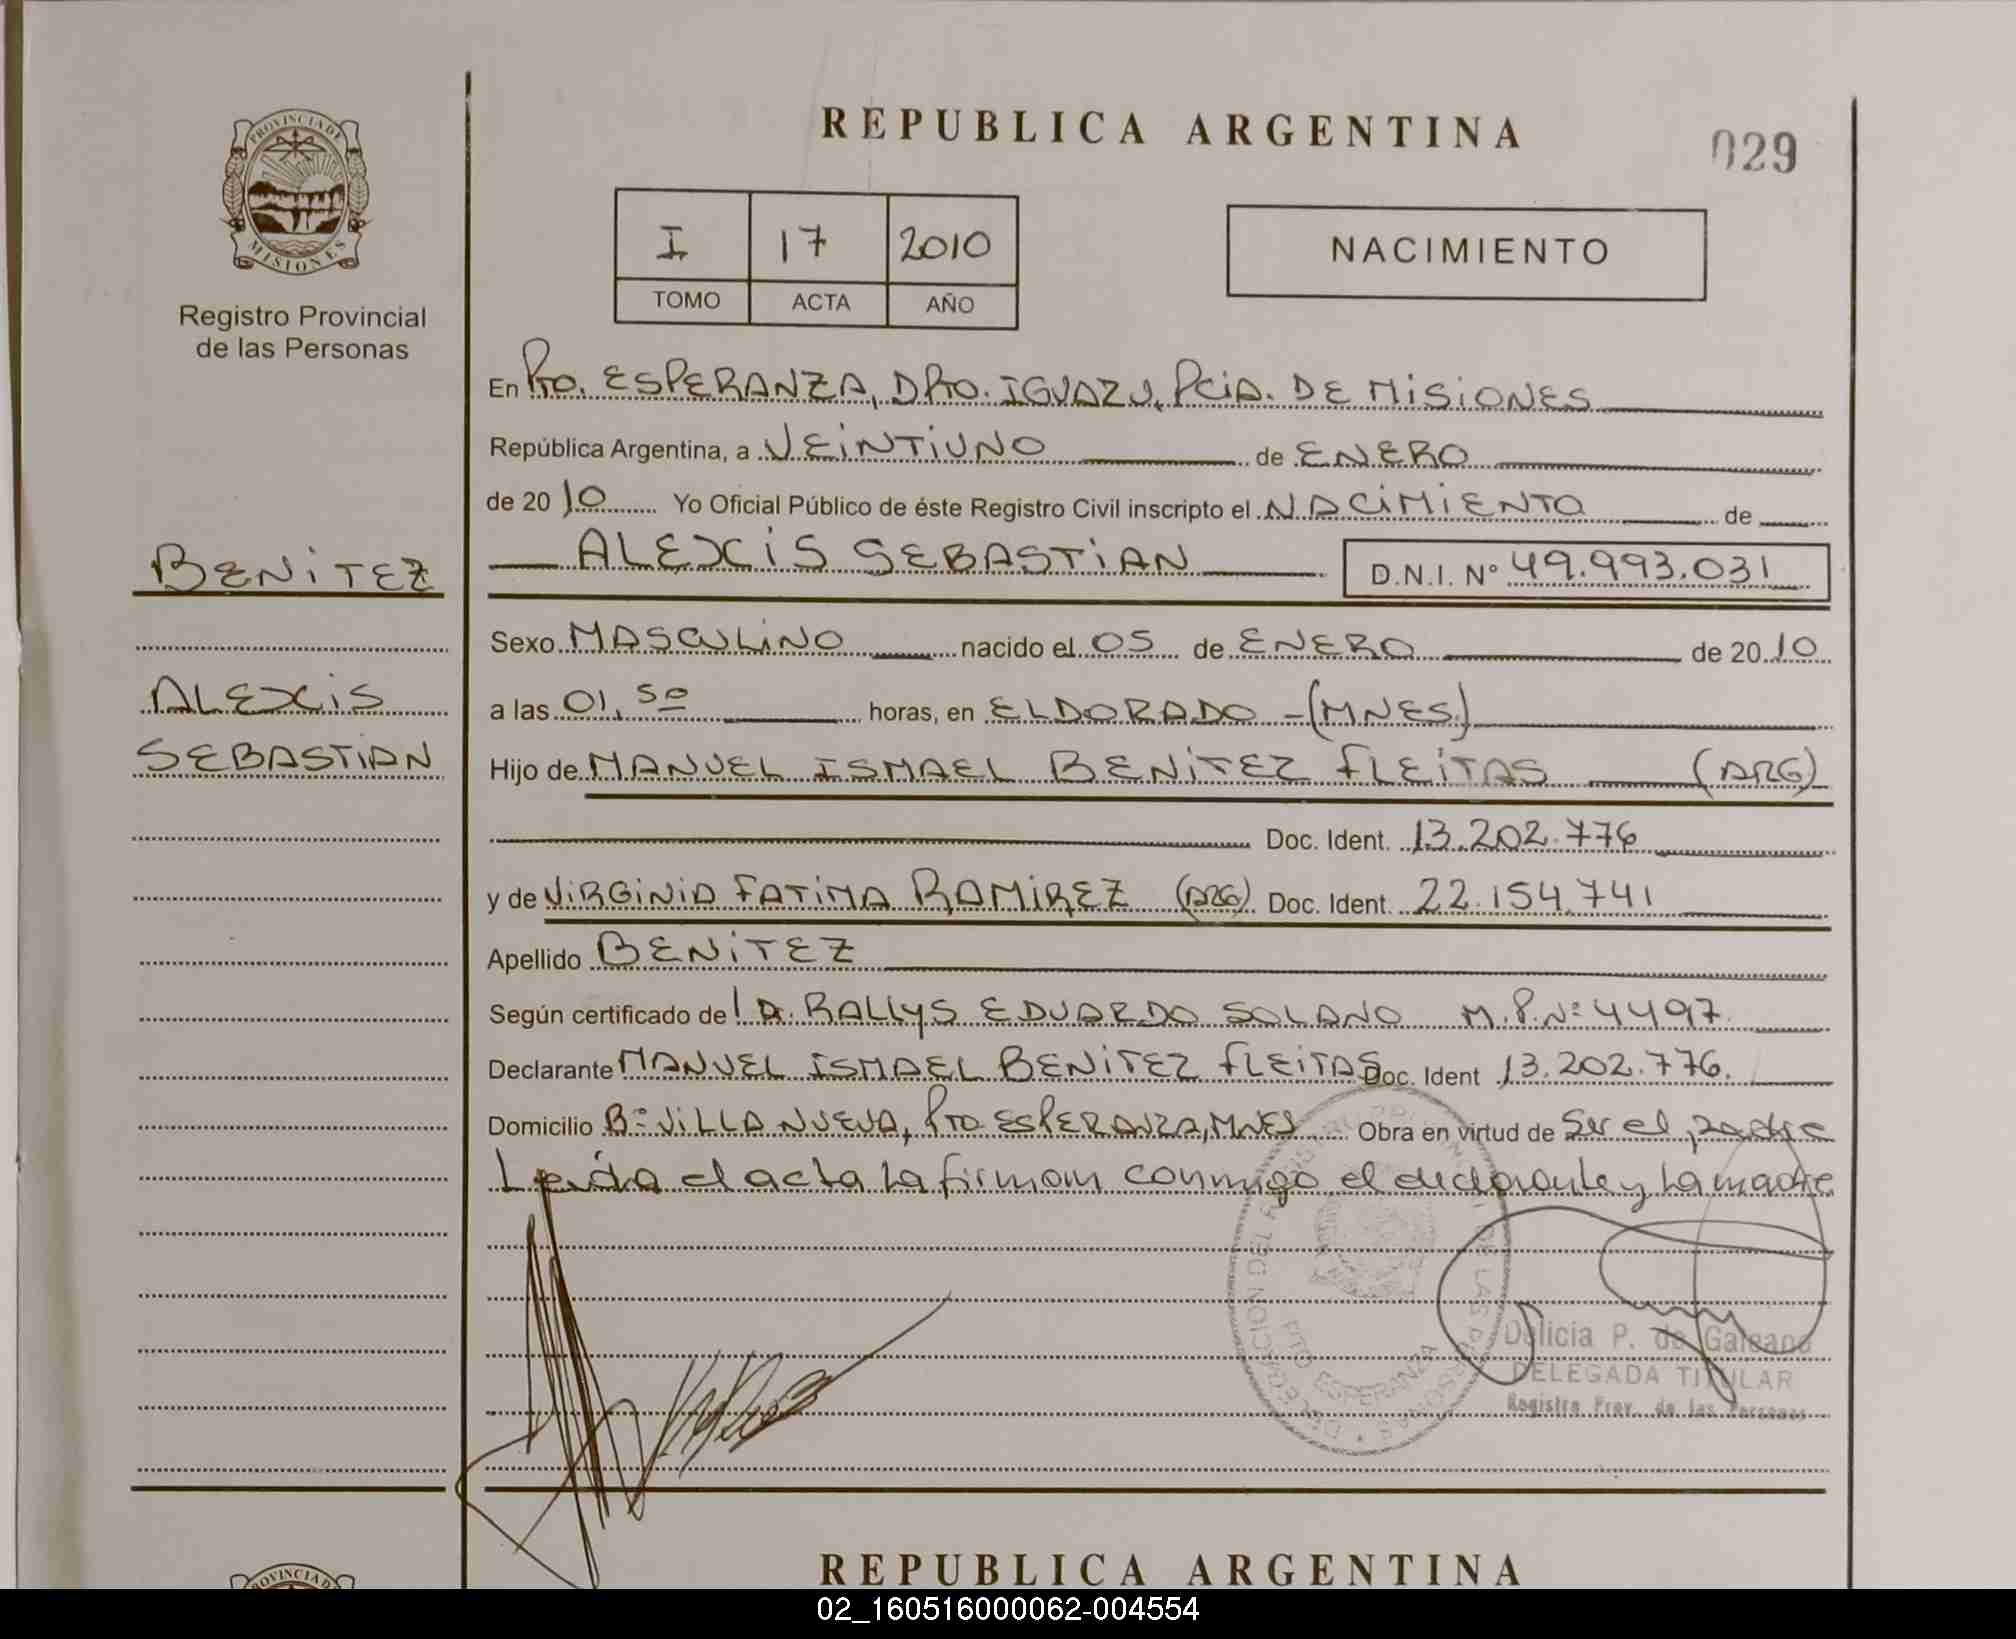 PROVINCIA DE
MISIONES
Registro Provincial
de las Personas
BENITEZ
ALEXIS
SEBASTIAN
REPUBLICA ARGENTINA
029
I 17 2010
TOMO ACTA AÑO
NACIMIENTO
En Pto. ESPERANZA, Dpto. IGUAZU, Pcia. DE MISIONES
República Argentina, a VEINTIUNO de ENERO
de 2010 Yo Oficial Público de éste Registro Civil inscripto el NACIMIENTO de
ALEXIS SEBASTIAN D.N.I. N° 49.993.031
Sexo MASCULINO nacido el 05 de ENERO de 2010
a las 01,50 horas, en ELDORADO - (MNES)
Hijo de MANUEL ISMAEL BENITEZ FLEITAS (ARG)
Doc. Ident. 13.202.776
y de VIRGINIA FATIMA RAMIREZ (ARG) Doc. Ident. 22.154.741
Apellido BENITEZ
Según certificado de RALLYS EDUARDO SOLANO M.P.Nº 4497
Declarante MANUEL ISMAEL BENITEZ FLEITAS Doc. Ident 13.202.776.
Domicilio Bº VILLA NUEVA, Pto ESPERANZA, MNES Obra en virtud de Ser el padre
Leída el acta la firman conmigo el declarante y la madre
Delicia P. de Galeano
DELEGADA TITULAR
Registro Prov. de las Personas
PTO ESPERANZA
REPUBLICA ARGENTINA
02_160516000062-004554